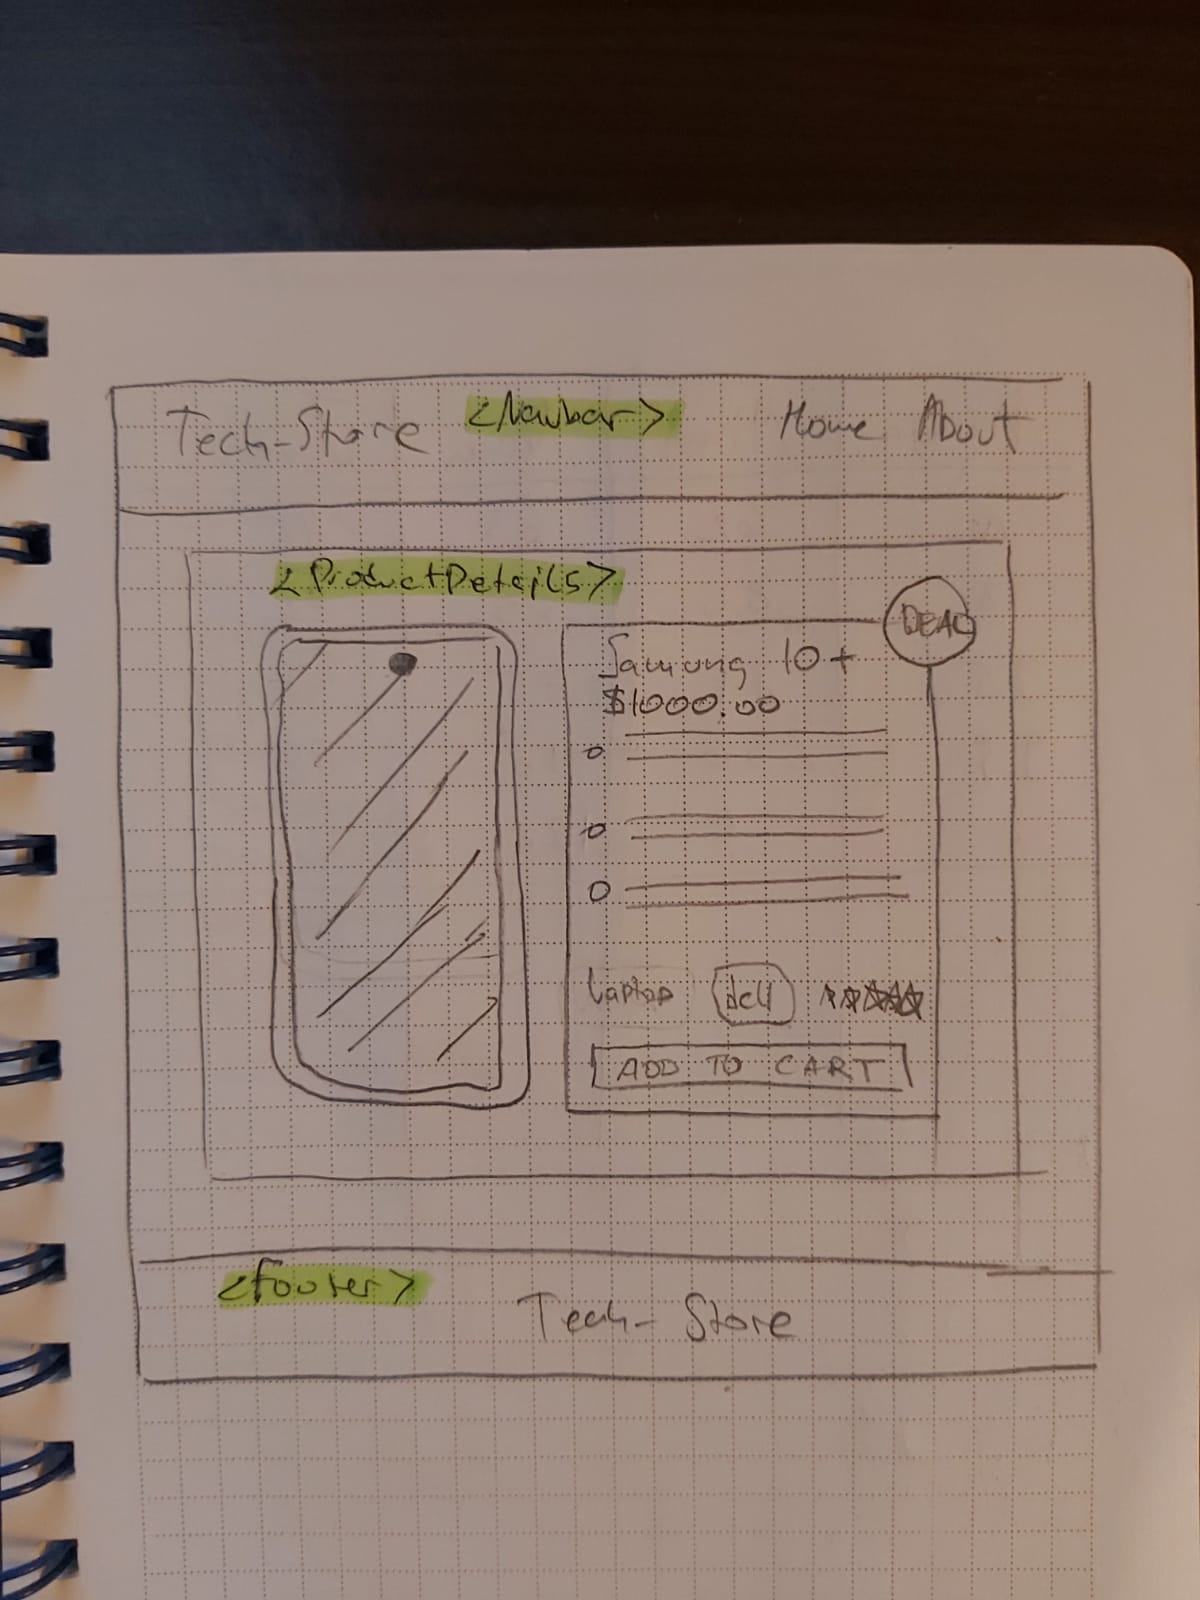 Tech-Store <Navbar> Home About
<ProductDetails>
DEAL
Samsung 10+
$1000.00
Laptop dell
ADD TO CART
<Footer>
Tech-Store